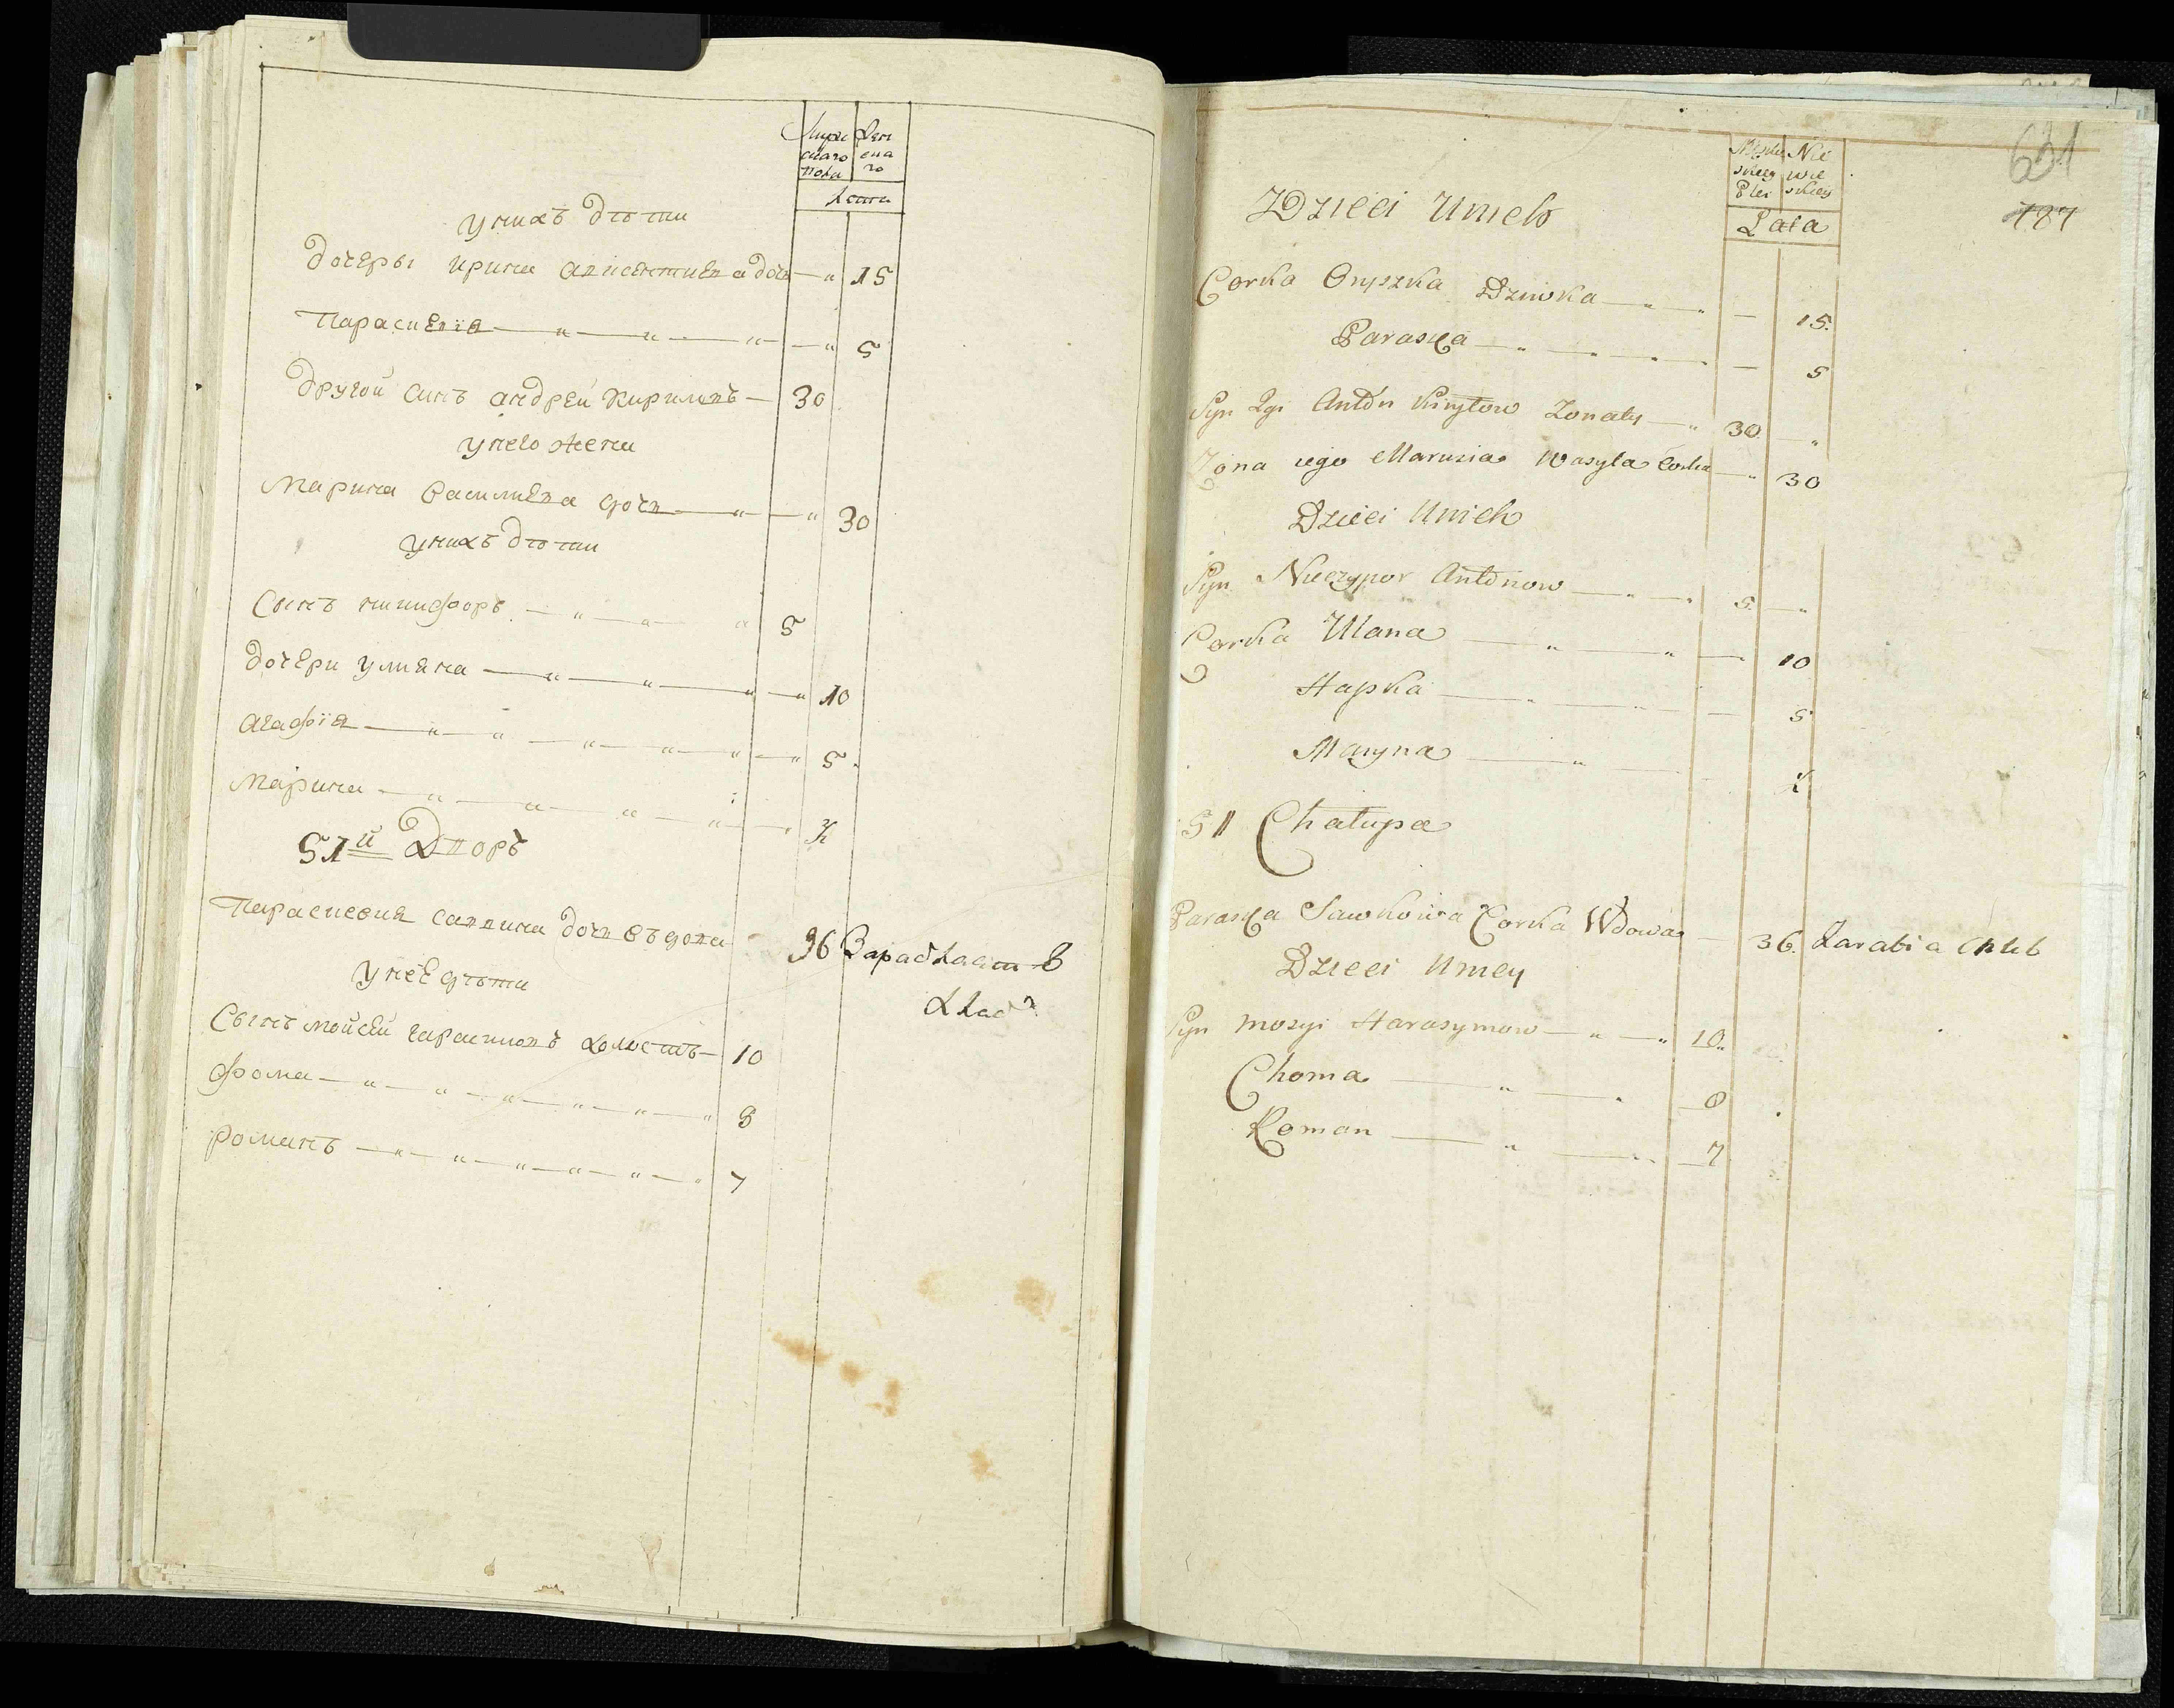 Муже Жен
скаго ска
пола го
Лета
у нихъ дѣти
дочеры ирина авксентиева дочь — 15
Параскевія — 5
другой синъ андрей Кириловъ — 30
у него жена
Марина василиева дочь — 30
у нихъ дѣти
Сынъ никифоръ — 5
дочери улияна — 10
агафія — 5
Марина — ½
51й Дворъ
Параскевия саввина дочь въдова 36 Зарабляет
хлаб
у неё дѣти
Сынъ мойсей гарасимовъ холостъ — 10
фома — 8
романъ — 7
631
787
Męzkiey Nie
Plei wieskiey
Lata
Dzieci Unich
Corka Oryszka Dziwka — 15.
Paraska — 5
Syn 2gi Andry Kiryłow Zonaty — 30
Zona iego Marusia Wasyla Corka — 30
Dzieci Unich
Syn Niczypor Andriow — 5.
Corka Ulana — 10
Hapka — 5
Maryna — ½
51 Chałupa
Paraska Sawkowa Corka Wdowa — 36. Zarabia Chleb
Dzieci Uniey
Syn Mosyi Harasymow — 10.
Choma — 8
Roman — 7